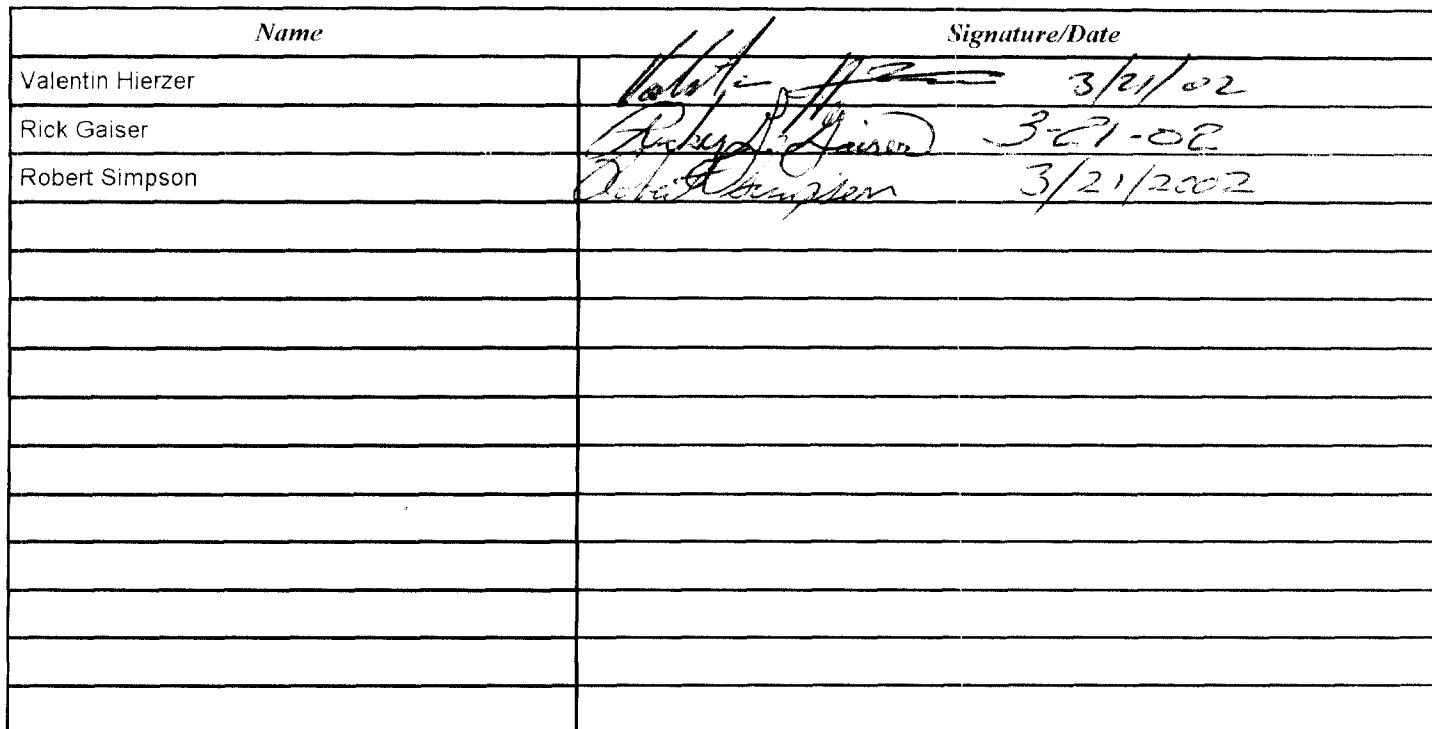 Name Signature/Date
Valentin Hierzer 3/21/02
Rick Gaiser Ricky D. Gaiser 3-21-02
Robert Simpson Robert Simpson 3/21/2002